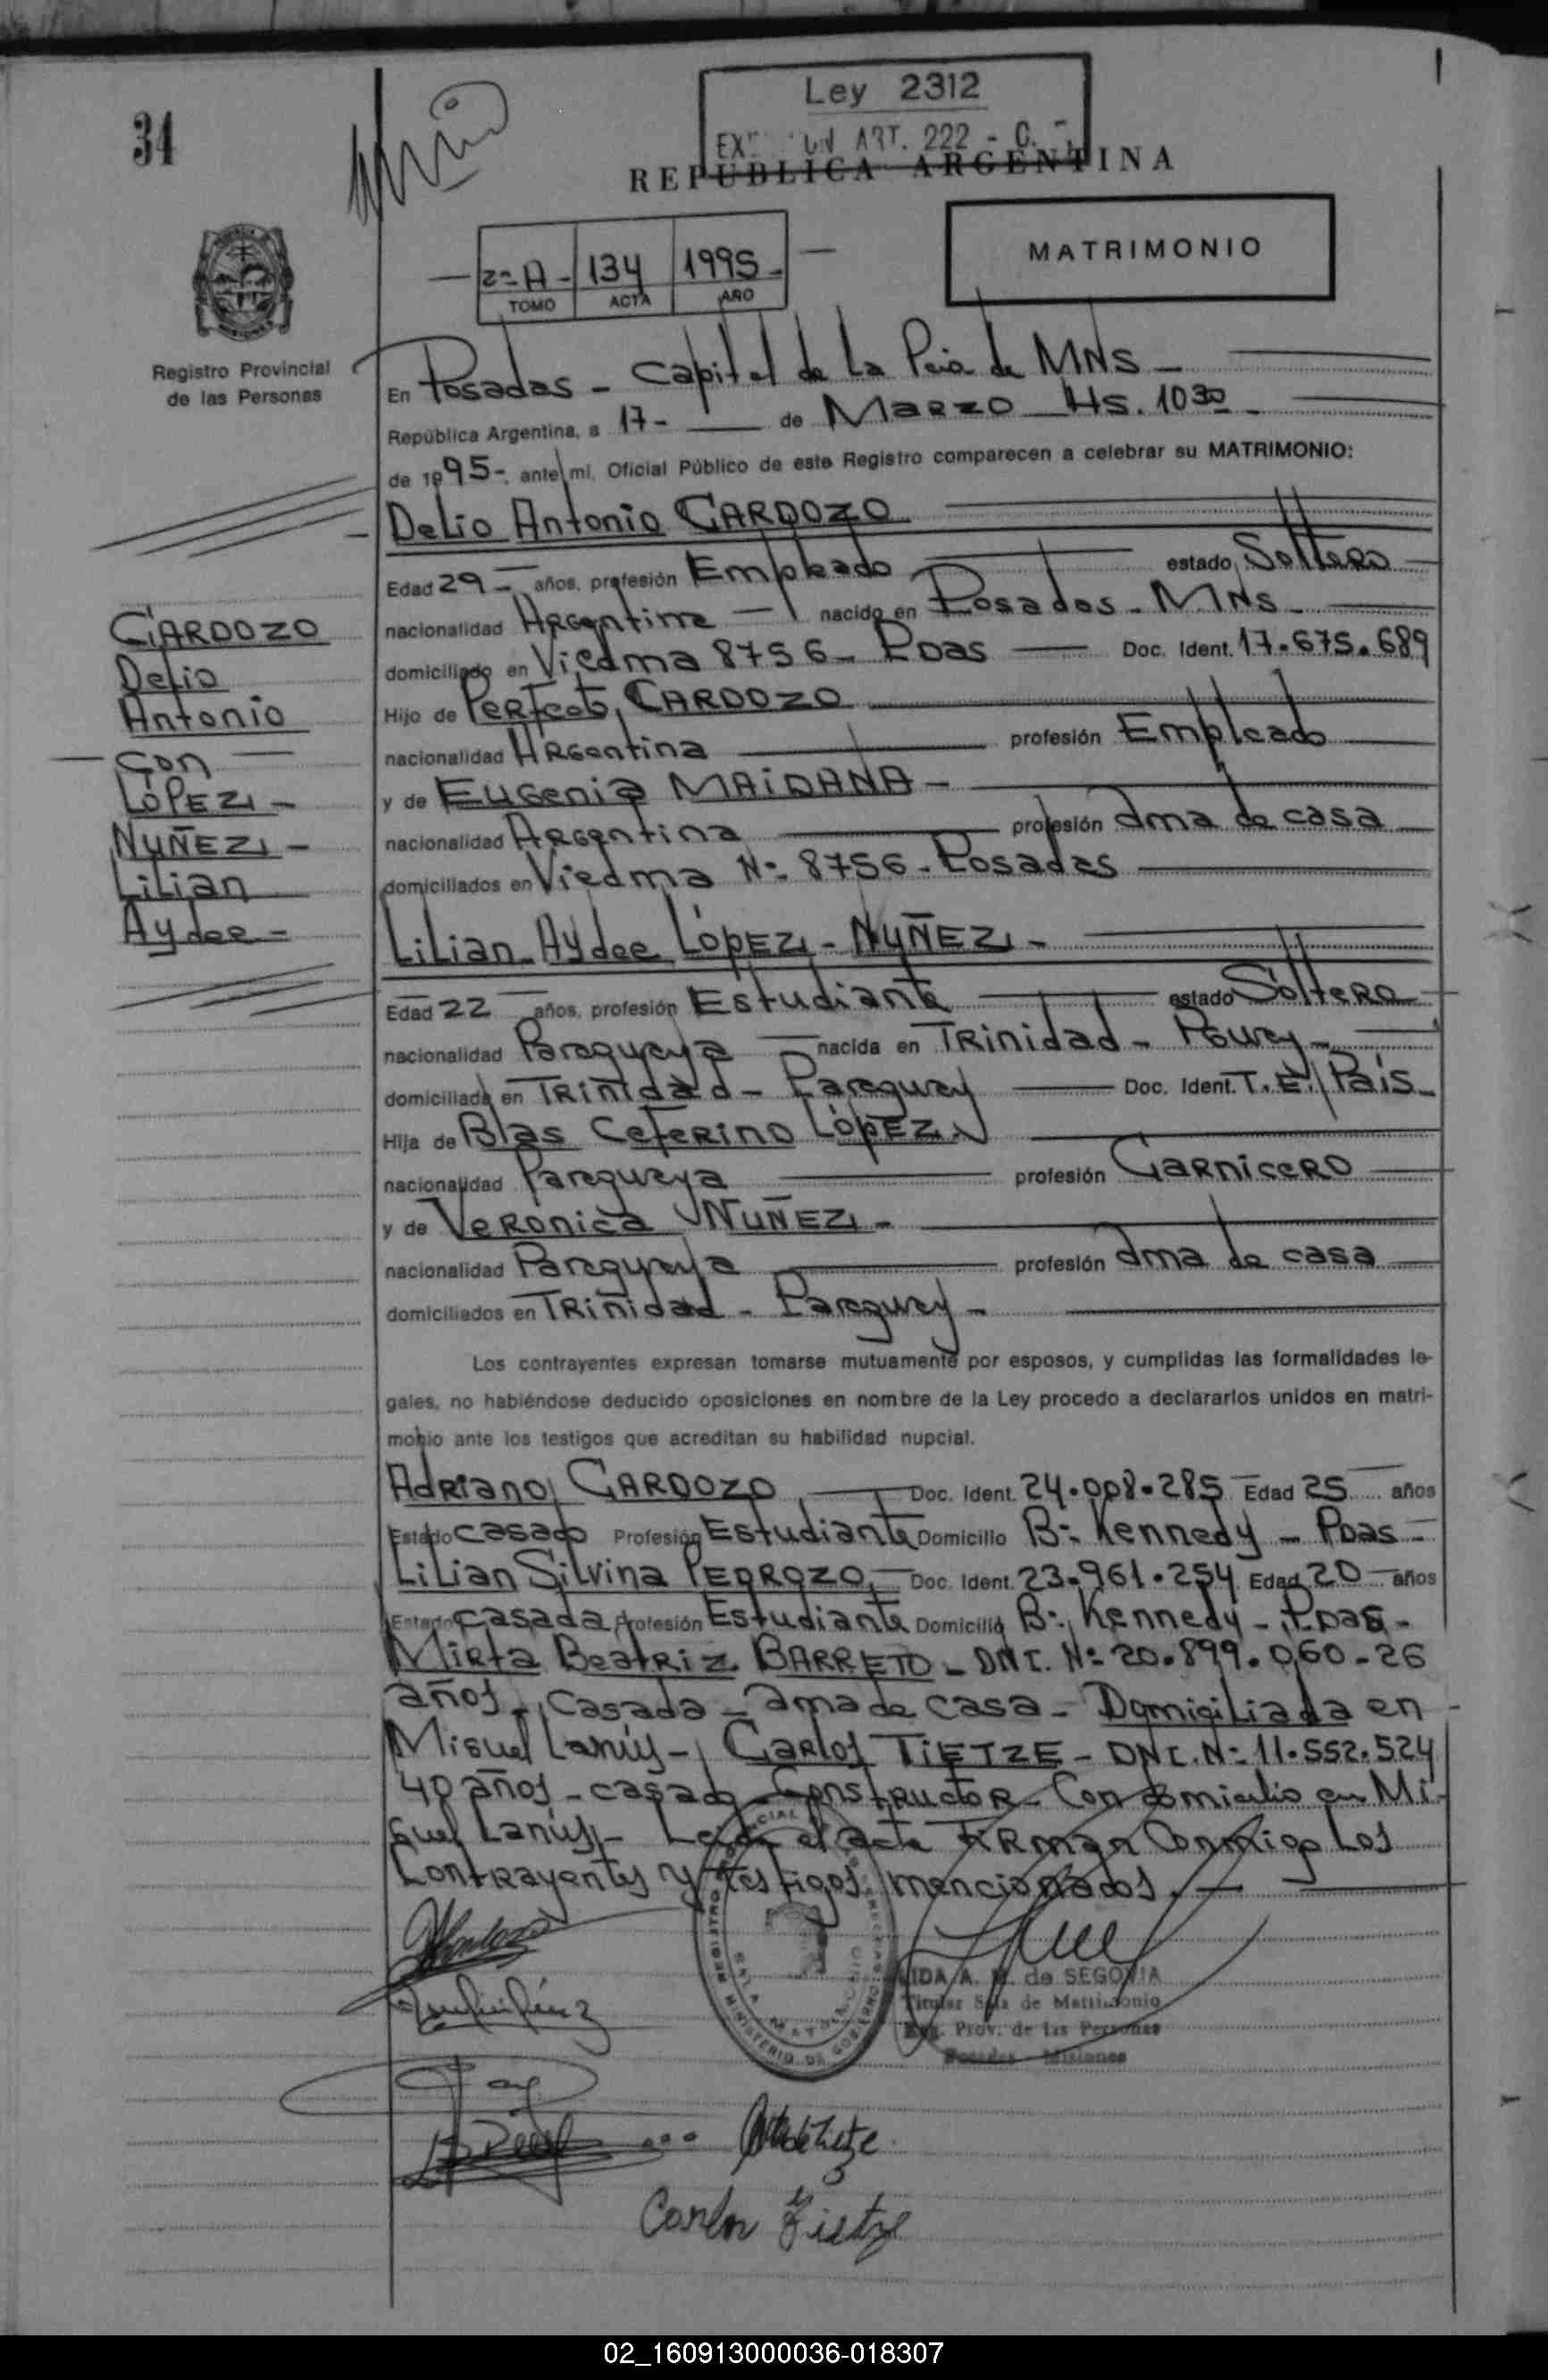 34
Ley 2312
ART. 222 - C.
REPUBLICA ARGENTINA
2= A - 134 1995 -
TOMO ACTA AÑO
MATRIMONIO
Registro Provincial
de las Personas
En Posadas - Capital de La Pcia de MNS -
República Argentina, a 17 - de Marzo Hs. 10 30 -
de 1995 -, ante mí, Oficial Público de este Registro comparecen a celebrar su MATRIMONIO:
Delio Antonio CARDOZO
Edad 29 - años, profesión Empleado estado Soltero
nacionalidad Argentina - nacido en Posadas - MNS -
domiciliado en Viedma 8756 - Pdas Doc. Ident. 17.675.689
Hijo de Perfecto CARDOZO
nacionalidad Argentina profesión Empleado
y de Eugenia MAIDANA -
nacionalidad Argentina profesión ama de casa
domiciliados en Viedma Nº 8756 - Posadas
CARDOZO
Delio
Antonio
- Con -
LÓPEZ -
NUÑEZ -
Lilian
Aydee -
Lilian Aydee LÓPEZ - NUÑEZ -
Edad 22 años, profesión Estudiante estado Soltera
nacionalidad Paraguaya nacida en Trinidad -
domiciliada en Trinidad - Paraguay Doc. Ident. T.E./País -
Hija de Blas Ceferino LÓPEZ
nacionalidad Paraguaya profesión Carnicero
y de Verónica NUÑEZ -
nacionalidad Paraguaya profesión ama de casa
domiciliados en Trinidad - Paraguay -
Los contrayentes expresan tomarse mutuamente por esposos, y cumplidas las formalidades le-
gales, no habiéndose deducido oposiciones en nombre de la Ley procedo a declararlos unidos en matri-
monio ante los testigos que acreditan su habilidad nupcial.
Adriano CARDOZO Doc. Ident. 24.008.285 Edad 25 años
Estado casado Profesión Estudiante Domicilio Bº Kennedy - Pdas -
Lilian Silvina PEDROZO Doc. Ident. 23.961.254 Edad 20 años
Estado casada Profesión Estudiante Domicilio Bº Kennedy - Pdas -
Mirta Beatriz BARRETO - DNI. Nº 20.899.060 - 26
años - Casada - ama de casa - Domiciliada en
Miguel Lanús - Carlos TIETZE - DNI. Nº 11.552.524
40 años - casado - Constructor - Con domicilio en Mi-
guel Lanús - Leída el acta Firman Conmigo Los
Contrayentes y testigos mencionados. -
de SEGOVIA
Titular Sala de Matrimonio
Reg. Prov. de las Personas
Posadas - Misiones
MINISTERIO DE GOBIERNO
Carlos Tietze
02_160913000036-018307